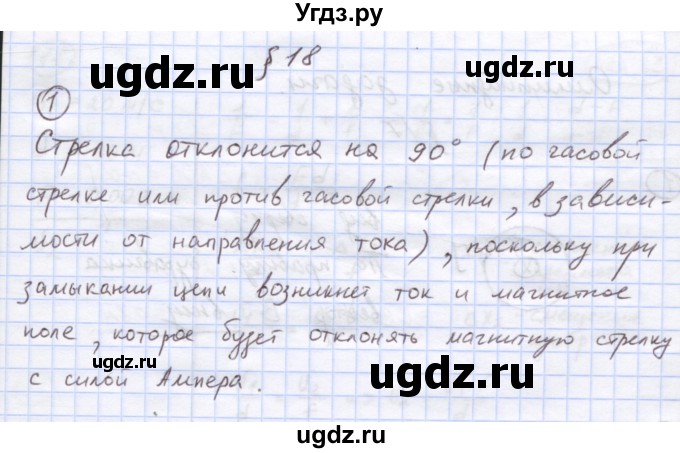 Угдз.ру
§ 18
ugdz.ru ugdz.ru
1
Стрелка отклонится на 90° (по часовой
стрелке или против часовой стрелки, в зависи-
ugdz.ru
мости от направления тока), поскольку при
замыкании цепи возникнет ток и магнитное
поле, которое будет отклонять магнитную стрелку
ugdz.ru ugdz.ru
с силой Ампера.
ugdz.ru